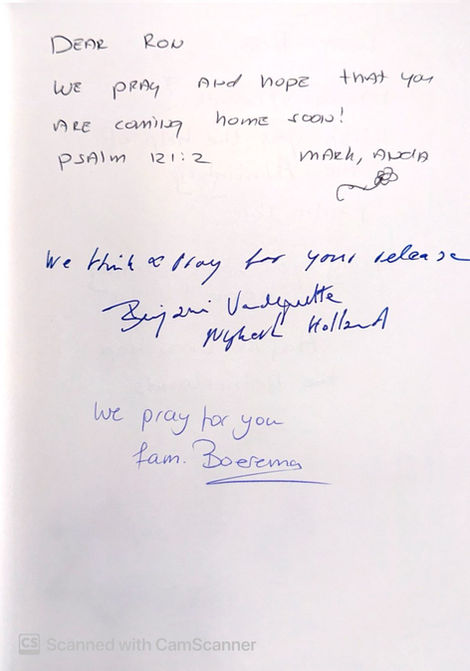 DEAR RON
WE PRAY AND HOPE that you
ARE coming home soon!
PSAlm 121:2 MARK, ANDA
We think & Pray for your release
Holland
We pray for you
fam. Boerema
CS Scanned with CamScanner